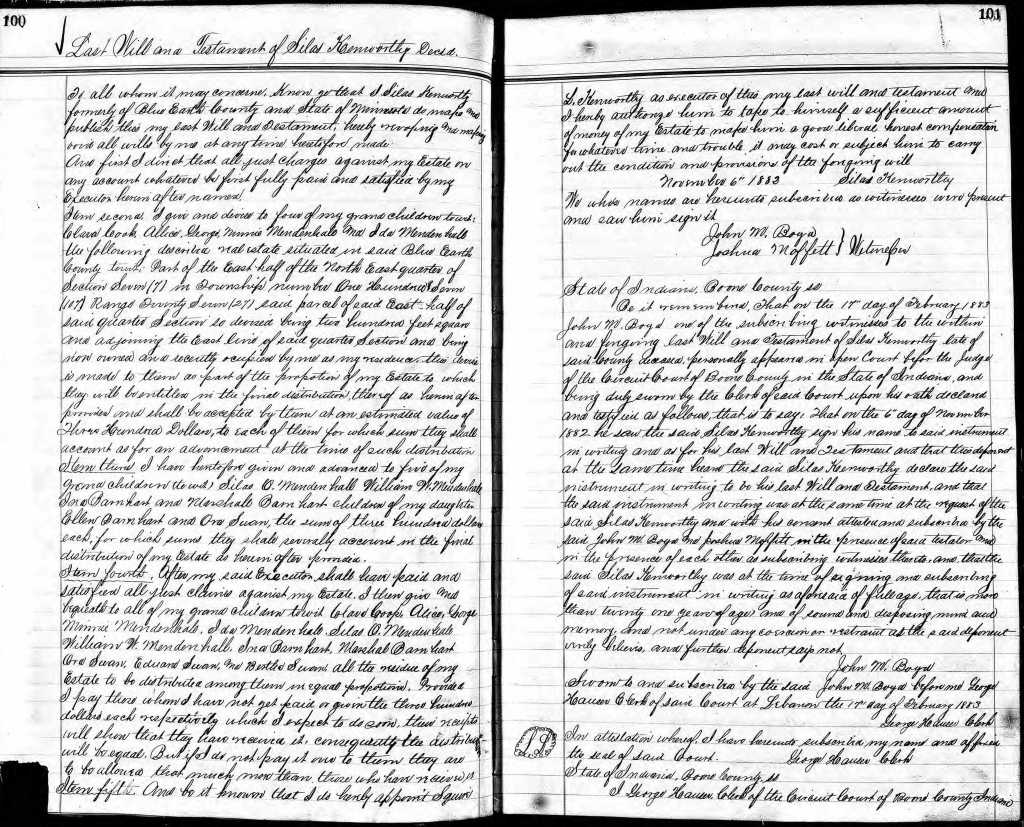 100
Last Will and Testament of Silas Kenworthy Decsd.
To all whom it may concern. Know ye that I Silas Kenworthy
formerly of Blue Earth County and State of Minnesota do make and
publish this my last Will and Testament, hereby revoking and making
void all wills by me at any time heretofore made.
And first I direct that all just charges against my Estate on
any account whatever be first fully paid and satisfied by my
Executor herein after named.
Item second. I give and devise to four of my grand children towit:
Clara Cook, Alice, George, Minnie Mendenhall and Ida Mendenhall
the following described real estate situated in said Blue Earth
County towit: Part of the East half of the North East quarter of
Section Seven (7) in Township number One Hundred & Seven
(107) Range Twenty Seven (27) said parcel of said East half of
said quarter Section so devised being two hundred feet square
and adjoining the East line of said quarter Section and being
now owned and recently occupied by me as my residence. this devise
is made to them as part of the proportion of my Estate to which
they will be entitled in the final distribution thereof as herein after
provided and shall be accepted by them at an estimated value of
Three Hundred Dollars, to each of them for which sum they shall
account as for an advancement at the time of such distribution
Item third I have heretofore given and advanced to five of my
grand children towit) Silas O. Mendenhall William W. Mendenhall
Ina Barnhart and Marshall Barnhart children of my daughter
Ellen Barnhart and Ora Swan, the sum of three hundred dollars
each, for which sums they shall severally account in the final
distribution of my Estate as herein after provided.
Item fourth. After my said Executor shall have paid and
satisfied all just claims against my Estate. I then give and
bequeath to all of my grand children towit Clara Cook, Alice, George
Minnie Mendenhall, Ida Mendenhall, Silas O. Mendenhall
William W. Mendenhall, Ina Barnhart, Marshal Barnhart
Ora Swan, Edward Swan, and Bertha Swan, all the residue of my
Estate to be distributed among them in equal proportions. Provided
I pay those whom I have not yet paid or given the three hundred
dollars each respectively which I expect to do soon, their receipts
will show that they have received it, consequently the distribution
will be equal. But if I do not pay it over to them they are
to be allowed that much more than those who have received it
Item fifth. And be it known that I do hereby appoint Squire
101
L. Kenworthy as executor of this my last will and testament and
I hereby authorize him to take to himself a sufficient amount
of money of my Estate to make him a good liberal honest compensation
for whatever time and trouble it may cost or subject him to carry
out the condition and provisions of the forgoing will
November 6th 1883 Silas Kenworthy
We whos names are hereunto subscribed as witnesses were present
and saw him sign it
John M. Boyd
Joshua Moffett } Witnesses
State of Indiana, Boone County ss
Be it remembered, That on the 17 day of February 1883
John M. Boyd one of the subscribing witnesses to the within
and forgoing last Will and Testament of Silas Kenworthy late of
said County deceased, personally appeared in open Court before the Judge
of the Circuit Court of Boone County in the State of Indiana, and
being duly sworn by the Clerk of said Court upon his oath declared
and testified as follows, that is to say; That on the 6 day of November
1882 he saw the said Silas Kenworthy sign his name to said instrument
in writing as and for his last Will and Testament and that this deponent
at the same time heard the said Silas Kenworthy declare the said
instrument in writing to be his last Will and Testament, and that
the said instrument in writing was at the same time at the request of the
said Silas Kenworthy and with his consent attested and subscribed by the
said John M. Boyd and Joshua Moffett, in the presence of said testator and
in the presence of each other as subscribing witnesses thereto. and that the
said Silas Kenworthy was at the time of signing and subscribing
of said instrument in writing as aforesaid of full age, that is, more
than twenty one years of age and of sound and disposing mind and
memory, and not under any coercion or restraint as the said deponent
verily believes, and further deponent says not.
John M. Boyd
Sworn to and subscribed by the said John M. Boyd before me George
Hauser Clerk of said Court at Lebanon the 17 day of February 1883.
George Hauser Clerk
In attestation whereof, I have hereunto subscribed my name and affixed
the seal of said Court. George Hauser Clerk
State of Indiana, Boone County ss
I George Hauser Clerk of the Circuit Court of Boone County Indiana